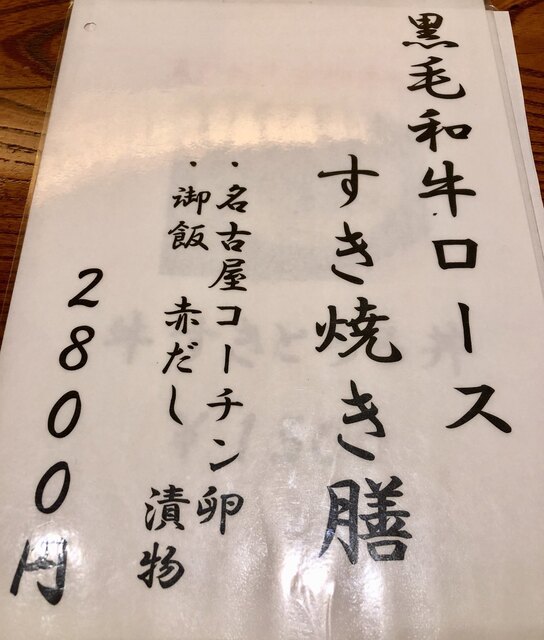 黒毛和牛ロース
すき焼き膳
・名古屋コーチン卵
・御飯 赤だし 漬物
2800円